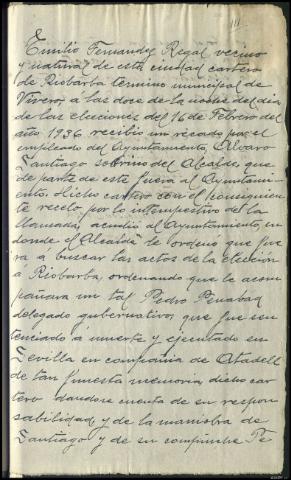 Emilio Fernandez Regal vecino
y natural de esta ciudad cartero
de Riobarba termino municipal de
Vivero, a las doce de la noche del dia
de las elecciones del 16 de Febrero del
año 1936, recibio un recado por el
empleado del Ayuntamiento, Alvaro
Santiago sobrino del Alcalde, que
de parte de este fuera al Ayuntami-
ento. dicho cartero con el consiguien-
te recelo, por lo intempestivo de la
llamada, acudio al Ayuntamiento, en
donde el Alcalde le ordeno que fue
ra a buscar las actas de la elección
a Riobarba, ordenando que le acom
pañara un tal Pedro Penabad
delegado gubernativo, que fue sen
tenciado a muerte y ejecutado en
Sevilla en compañia de Atadell
de tan funesta memoria, dicho car
tero dandose cuenta de su respon
sabilidad y de la maniobra de
Santiago y de su compinche Pe